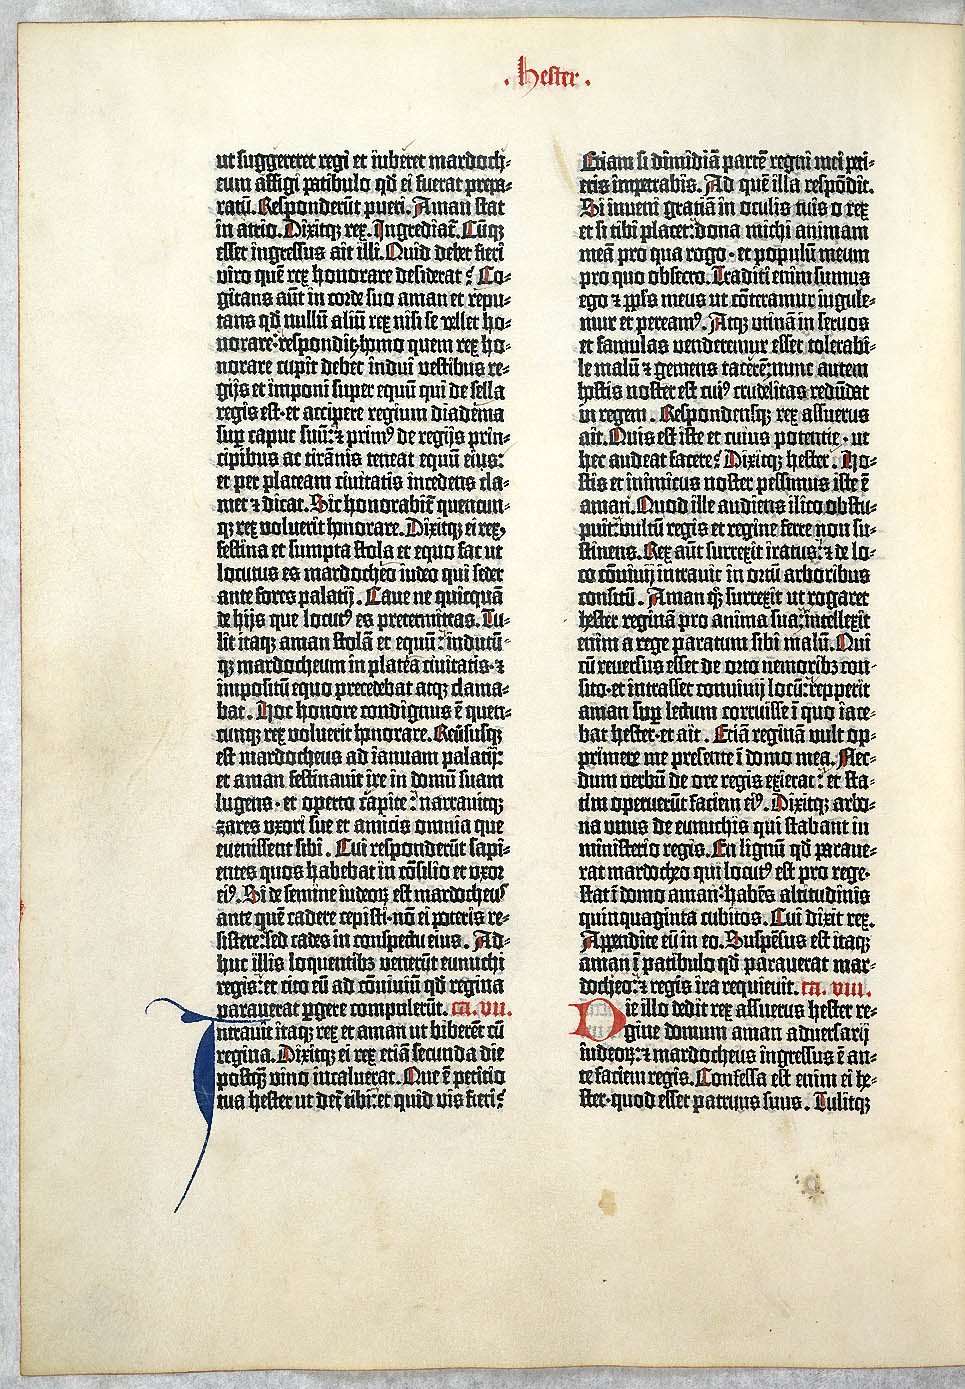 . hester .
ut suggereret regi et iuberet mardoch-
eum affigi patibulo qd̄ ei fuerat prepa-
ratū. Responderūt pueri. Aman stat
in atrio. Dixitqꝫ rex. Ingrediat̄. Cūqꝫ
esset ingressus ait illi. Quid debet fieri
viro quē rex honorare desiderat? Co-
gitans aūt in corde suo aman et repu-
tans qd̄ nullū aliū rex nisi se vellet ho-
norare: respondit. homo quem rex ho-
norare cupit debet indui vestibus re-
gijs et imponi super equū qui de sella
regis est. et accipere regium diadema
suꝑ caput suū: ⁊ primꝰ de regijs prin-
cipibus ac tirānis teneat equū eius:
et per plateam ciuitatis incedens cla-
met ⁊ dicat. Sic honorabit̄ quencun-
qꝫ rex voluerit honorare. Dixitqꝫ ei rex,
festina et sumpta stola et equo fac ut
locutus es mardocheo iudeo qui sedet
ante fores palatij. Caue ne quicquā
de hijs que locutꝰ es pretermittas. Tu-
lit itaqꝫ aman stolā et equū: indutū-
qꝫ mardocheum in platea ciuitatis. ⁊
impositū equo precedebat atqꝫ clama-
bat. Hoc honore condignus ē quen-
cunqꝫ rex voluerit honorare. Reūsusqꝫ
est mardocheus ad ianuam palatij:
et aman festinauit ire in domū suam
lugens. et operto capite: narrauitqꝫ
zares vxori sue et amicis omnia que
euenissent sibi. Cui responderūt sapi-
entes quos habebat in cōsilio et vxor
eiꝰ. Si de semine iudeoꝝ est mardocheus
ante quē cadere cepisti. nō ei poteris re-
sistere: sed cades in conspectu eius. Ad-
huc illis loquentibꝫ venerūt eunuchi
regis: et cito eū ad cōuiuiū qd̄ regina
parauerat ꝑgere compulerūt. ca. vii.
Intrauit itaqꝫ rex et aman ut biberēt cū
regina. Dixitqꝫ ei rex etiā secunda die
postqꝫ̄ vino incaluerat. Que ē petitio
tua hester ut det̄ tibi: et quid vis fieri?
Etiam si dimidiā partē regni mei peti-
eris impetrabis. Ad quē illa respōdit.
Si inueni gratiā in oculis tuis o rex
et si tibi placet: dona michi animam
meā pro qua rogo. et populū meum
pro quo obsecro. Traditi enim sumus
ego ⁊ ppl̄s meus ut cōteramur iugule-
mur et pereamꝰ. Atqꝫ vtinā in seruos
et famulas venderemur esset tolerabi-
le malū ⁊ gemens tacerē: nunc autem
hostis noster est cuiꝰ crudelitas redūdat
in regem. Respondensqꝫ rex assuerus
ait. Quis est iste et cuius potentie. ut
hec audeat facere? Dixitqꝫ hester. Ho-
stis et inimicus noster pessimus iste ē
aman. Quod ille audiens ilico obstu-
puit: vultū regis et regine ferre non su-
stinens. Rex aūt surrexit iratus: ⁊ de lo-
co cōuiuij intrauit in ortū arboribus
consitū. Aman qꝫ surrexit ut rogaret
hester reginā pro anima sua: intellexit
enim a rege paratum sibi malū. Qui
cū reuersus esset de orto nemoribꝫ con-
sito. et intrasset conuiuij locū: repperit
aman suꝑ lectum corruisse ī quo iace-
bat hester. et ait. Etiā reginā vult op-
primere me presente ī domo mea. Nec-
dum verbū de ore regis exierat: et sta-
tim operuerūt faciem eiꝰ. Dixitqꝫ arbo-
na vnus de eunuchis qui stabant in
ministerio regis. En lignū qd̄ paraue-
rat mardocheo qui locutꝰ est pro rege.
stat ī domo aman: habēs altitudinis
quinquaginta cubitos. Cui dixit rex.
Appendite eū in eo. Suspēsus est itaqꝫ
aman ī patibulo qd̄ parauerat mar-
docheo: ⁊ regis ira requieuit. ca. viii.
Die illo dedit rex assuerus hester re-
gine domum aman aduersarij
iudeoꝝ: ⁊ mardocheus ingressus ē an-
te faciem regis. Confessa est enim ei he-
ster. quod esset patruus suus. Tulitqꝫ